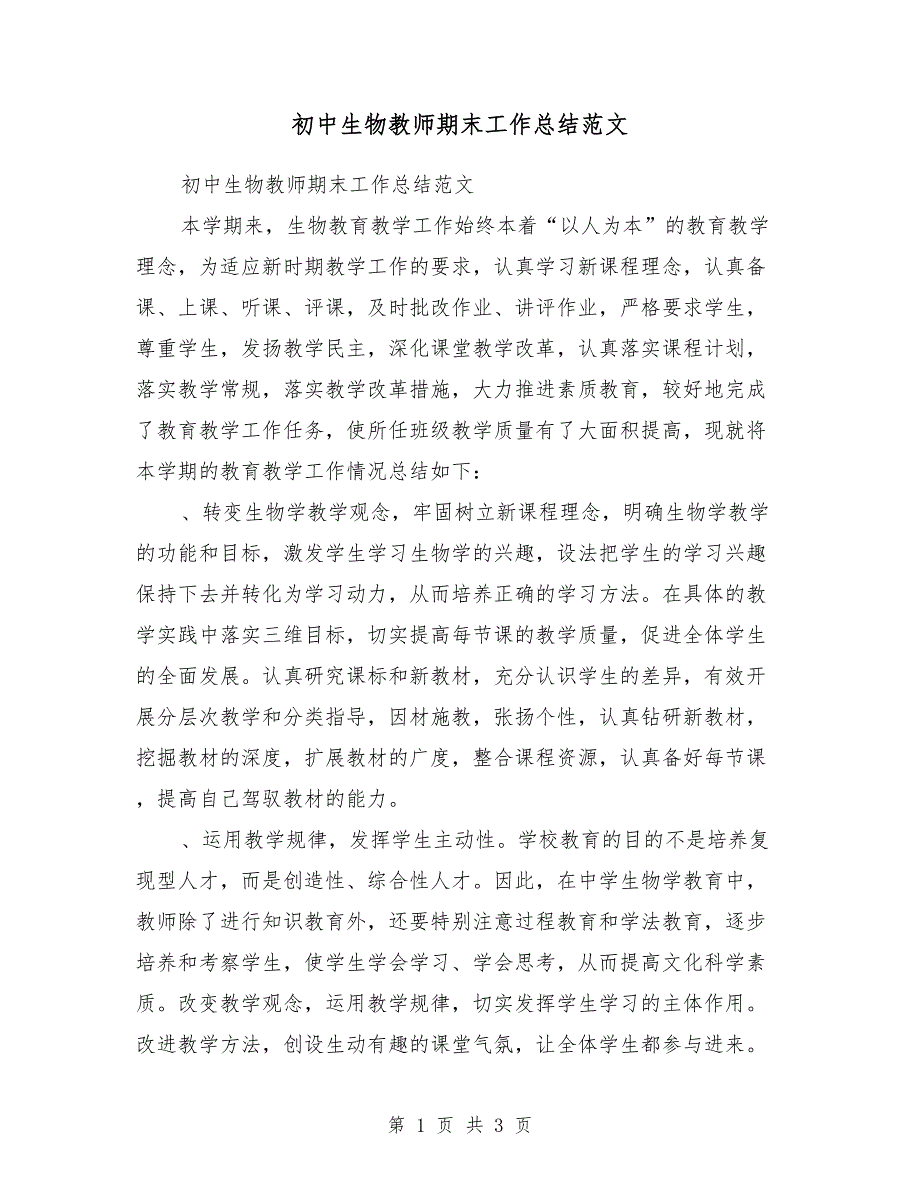 初中生物教师期末工作总结范文
初中生物教师期末工作总结范文
本学期来，生物教育教学工作始终本着“以人为本”的教育教学
理念，为适应新时期教学工作的要求，认真学习新课程理念，认真备
课、上课、听课、评课，及时批改作业、讲评作业，严格要求学生，
尊重学生，发扬教学民主，深化课堂教学改革，认真落实课程计划，
落实教学常规，落实教学改革措施，大力推进素质教育，较好地完成
了教育教学工作任务，使所任班级教学质量有了大面积提高，现就将
本学期的教育教学工作情况总结如下：
、转变生物学教学观念，牢固树立新课程理念，明确生物学教学
的功能和目标，激发学生学习生物学的兴趣，设法把学生的学习兴趣
保持下去并转化为学习动力，从而培养正确的学习方法。在具体的教
学实践中落实三维目标，切实提高每节课的教学质量，促进全体学生
的全面发展。认真研究课标和新教材，充分认识学生的差异，有效开
展分层次教学和分类指导，因材施教，张扬个性，认真钻研新教材，
挖掘教材的深度，扩展教材的广度，整合课程资源，认真备好每节课
，提高自己驾驭教材的能力。
、运用教学规律，发挥学生主动性。学校教育的目的不是培养复
现型人才，而是创造性、综合性人才。因此，在中学生物学教育中，
教师除了进行知识教育外，还要特别注意过程教育和学法教育，逐步
培养和考察学生，使学生学会学习、学会思考，从而提高文化科学素
质。改变教学观念，运用教学规律，切实发挥学生学习的主体作用。
改进教学方法，创设生动有趣的课堂气氛，让全体学生都参与进来。
第 1 页 共 3 页